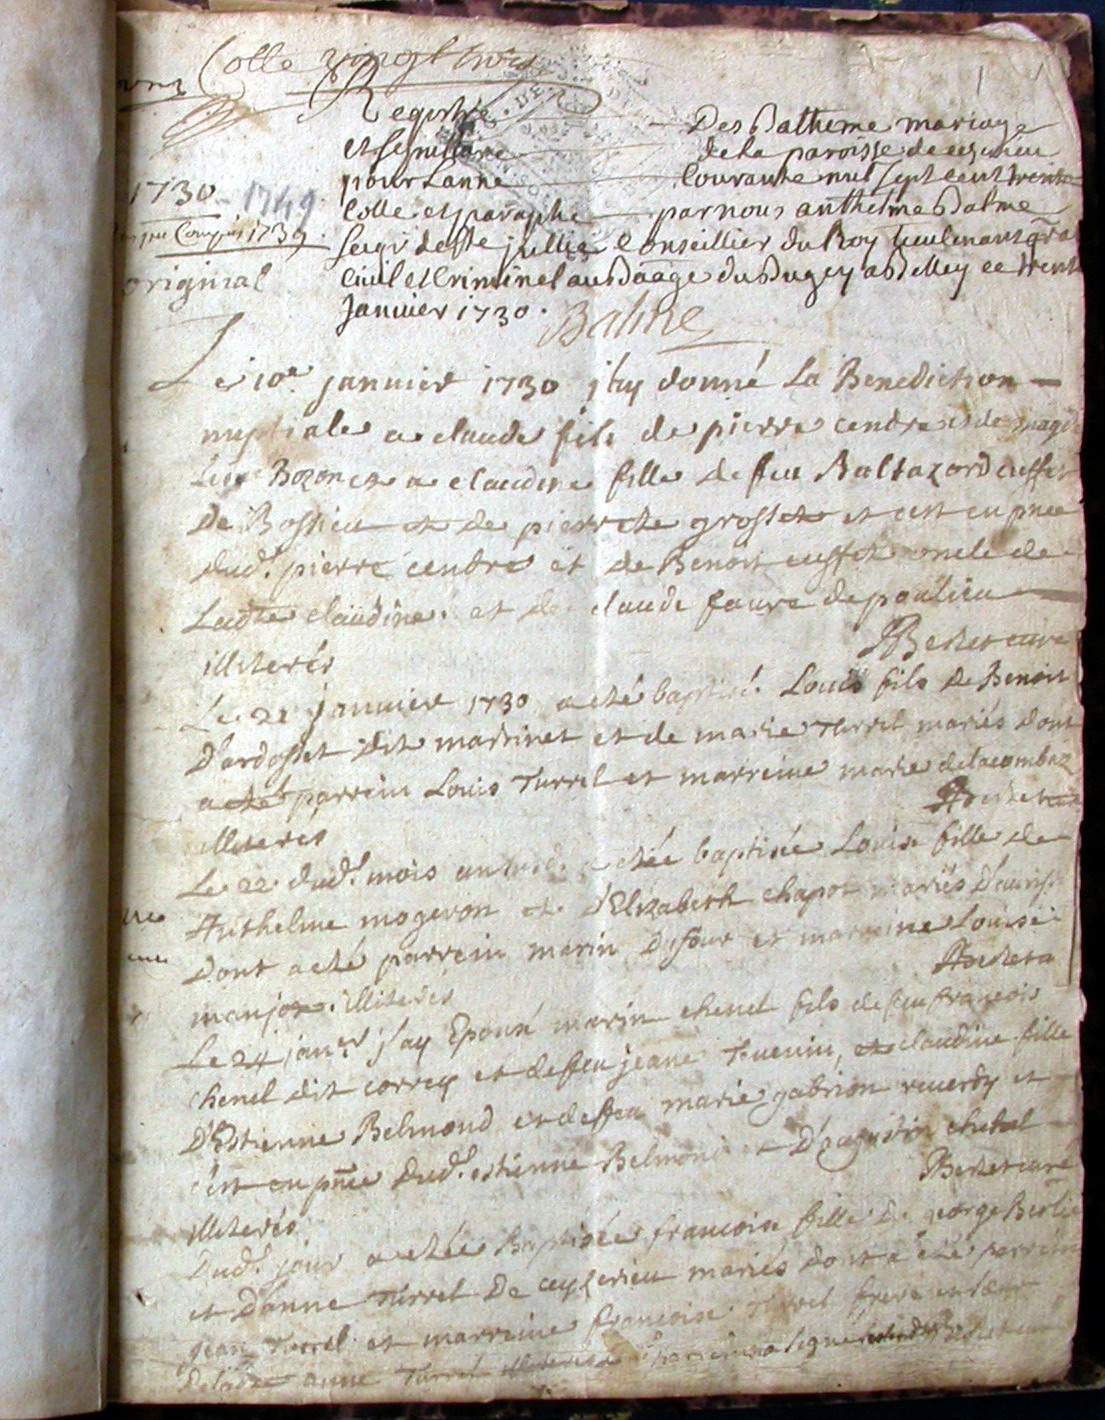 Cotte vingt trois
Registre Des Batheme mariage
et sepulture de la paroisse de ceyzerieu
1730 - 1749
pour Lanné Courante mil sept cent trente
Cotté et paraphé par nous anthelme Balme
1739
Seigr de Ste jullie Conseillier du Roy Lieutenant gral
original
Civil et Criminel au Baage du Bugey a Belley ce trente
Janvier 1730.
Balme
Le 10e janvier 1730 j'ay donné La Benediction
nuptiale a claude fils de pierre cendre et de magde
Bozonet a claudine fille de feu Baltazard cuffet
De Bossieu et de pierrette grosset et c'est en pnce
dud. pierre cendre et de Benoit cuffet oncle de
Ladte claudine. et de claude faure de poulieu
illiterés
curé
Le 21 janvier 1730 a eté baptisé Louis fils de Benoit
D'ardosset dit martinet et de marie Turrel mariés dont
a eté parrein Louis Turrel et marreine marie delacombaz
illiterés
Le 22 dud. mois a etée baptisée Louise fille de
Anthelme mogeron et d'Elizabeth chapot mariés
Dont a eté parrein marin Dufour et marreine Louise
illiterés
Le 24 janer j'ay Epousé marin chenel fils de feu françois
chenel dit correy et de feu jeane Tuenin, et claudine fille
D'Estienne Belmond et de feu marie gabrion et
c'est en pnce dud. estienne Belmond et D'augustin
illiterés
curé
Dud. jour a etée Baptisée francoise fille de george
et D'anne Turrel De ceyzerieu mariés dont a eté parrein
jean Turrel et marreine françoise Turrel frere
anne Turrel